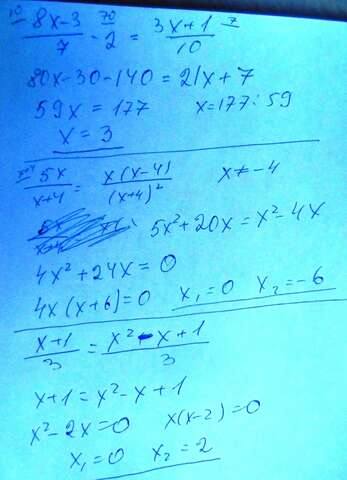 10 (8x-3)/7 - 70 2 = (3x+1)/10 7
80x-30-140=21x+7
59x=177 x=177:59
x=3
x+4 5x/(x+4) = x(x-4)/(x+4)² x≠-4
5x²+20x=x²-4x
4x²+24x=0
4x(x+6)=0 x₁=0 x₂=-6
(x+1)/3 = (x²-x+1)/3
x+1=x²-x+1
x²-2x=0 x(x-2)=0
x₁=0 x₂=2